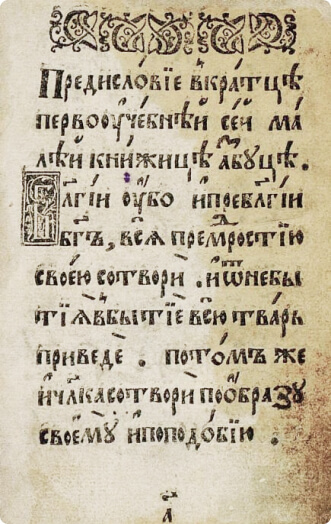 Предисло́вїе вкра́тцѣ
первоꙋчебнѣ́й се́й ма́
лѣй кни́жицѣ а́збꙋцѣ .
Бл҃гі́й ᲂу҆́бо и҆пребл҃гі́й
бг҃ъ , всѧ̀ прем꙯ростїю
свое́ю сотворѝ . и҆ѿнебы
тїѧ̀ в̾бытїѐ всю̀ тва́рь
приведѐ . пото́мъ же
и҆чл҃ка сотворѝ поѻ҆́бразꙋ
своемꙋ̀ и҆поподо́бїю .
а҃